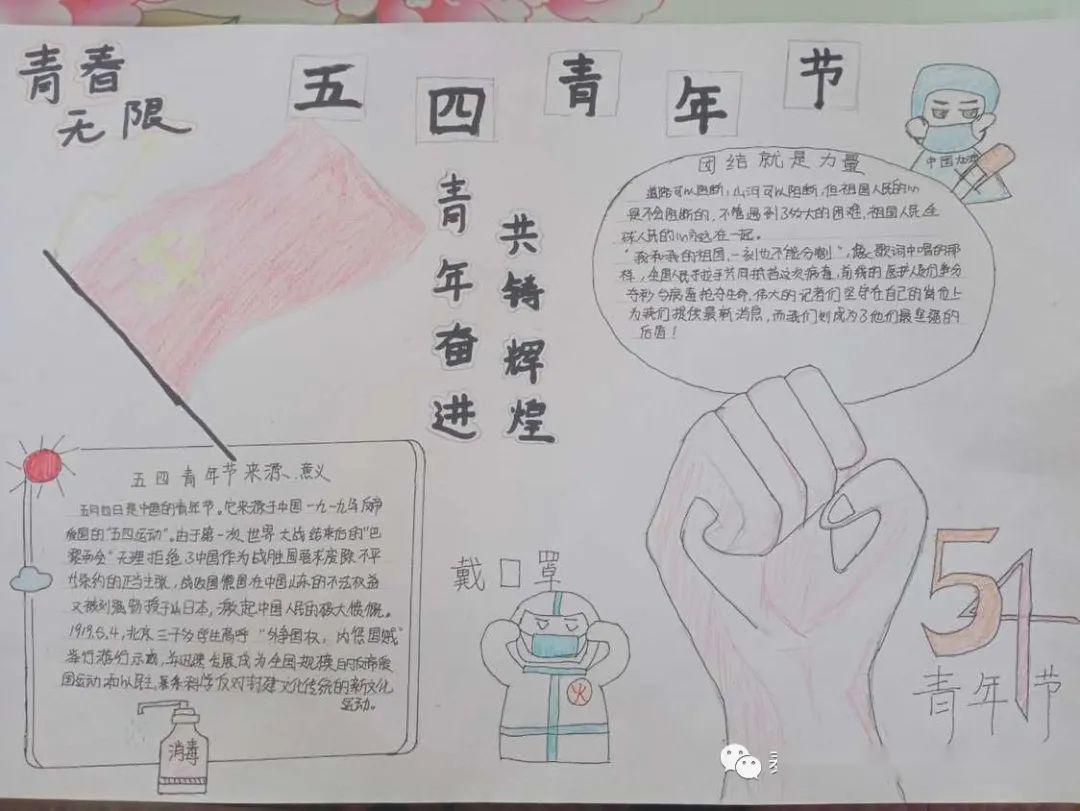 青春
无限
五四青年节
青年奋进
共铸辉煌
中国加油
团结就是力量
道路可以阻断，山河可以阻断，但祖国人民的心
是不会阻断的，不管遇到多大的困难，祖国人民全
球人民的心永远在一起。
“我和我的祖国，一刻也不能分割”，像歌词中唱的那
样，全国人民手拉手共同抵挡这次病毒，前线的医护人员们争分
夺秒与病毒抢夺生命，伟大的记者们坚守在自己的岗位上
为我们提供最新消息，而我们则成为了他们最坚强的
后盾！
五四青年节来源、意义
五月四日是中国的青年节。它来源于中国一九一九年反帝
爱国的“五四运动”。由于第一次世界大战结束后的“巴
黎和会”无理拒绝了中国作为战胜国要求废除不平
等条约的正当主张，战败国德国在中国山东的不法权益
又被列强转授予日本，激起中国人民的极大愤慨。
1919.5.4，北京三千多学生高呼“外争国权，内惩国贼”
举行游行示威，并迅速发展成为全国规模的反帝爱
国运动和以民主，科学反对封建文化传统的新文化
运动。
消毒
戴口罩
火
54
青年节